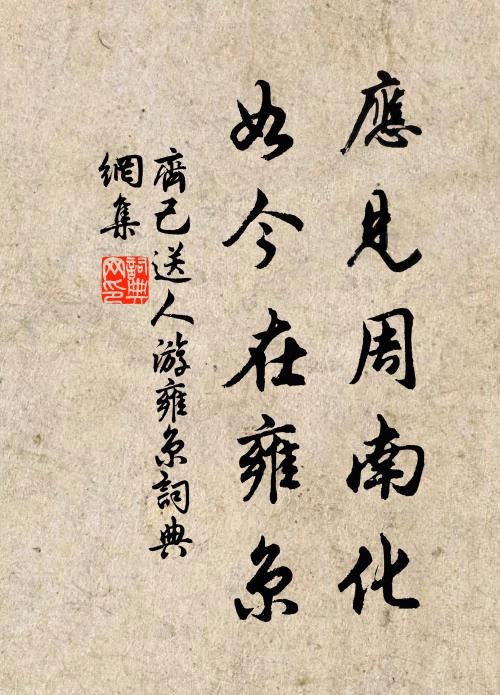 應見周南化
如今在雍京
齊己送人游雍京詞典
網集
詞典網印